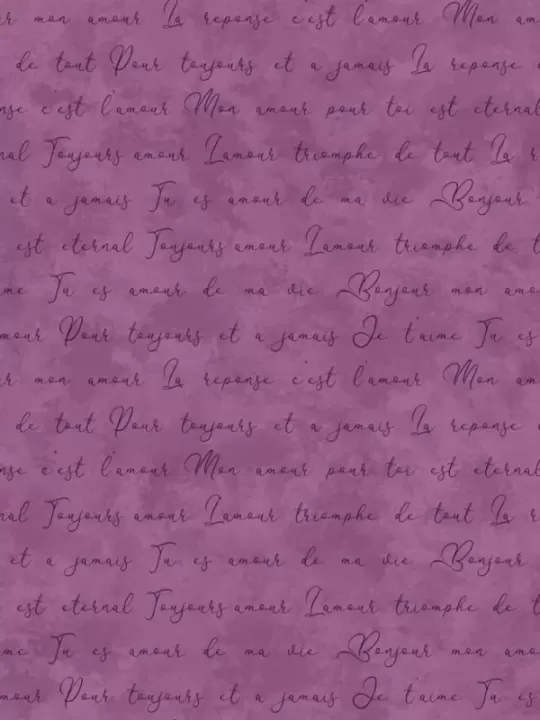 mon amour La reponse c'est l'amour Mon am
de tout Pour toujours et a jamais La reponse
nse c'est l'amour Mon amour pour toi est eternal
nal Toujours amour L'amour triomphe de tout La r
et a jamais Tu es amour de ma vie Bonjour
est eternal Toujours amour L'amour triomphe de t
me Tu es amour de ma vie Bonjour mon amo
mour Pour toujours et a jamais Je t'aime Tu es
r mon amour La reponse c'est l'amour Mon am
de tout Pour toujours et a jamais La reponse
nse c'est l'amour Mon amour pour toi est eternal
nal Toujours amour L'amour triomphe de tout La r
et a jamais Tu es amour de ma vie Bonjour
est eternal Toujours amour L'amour triomphe de t
me Tu es amour de ma vie Bonjour mon amo
mour Pour toujours et a jamais Je t'aime Tu es